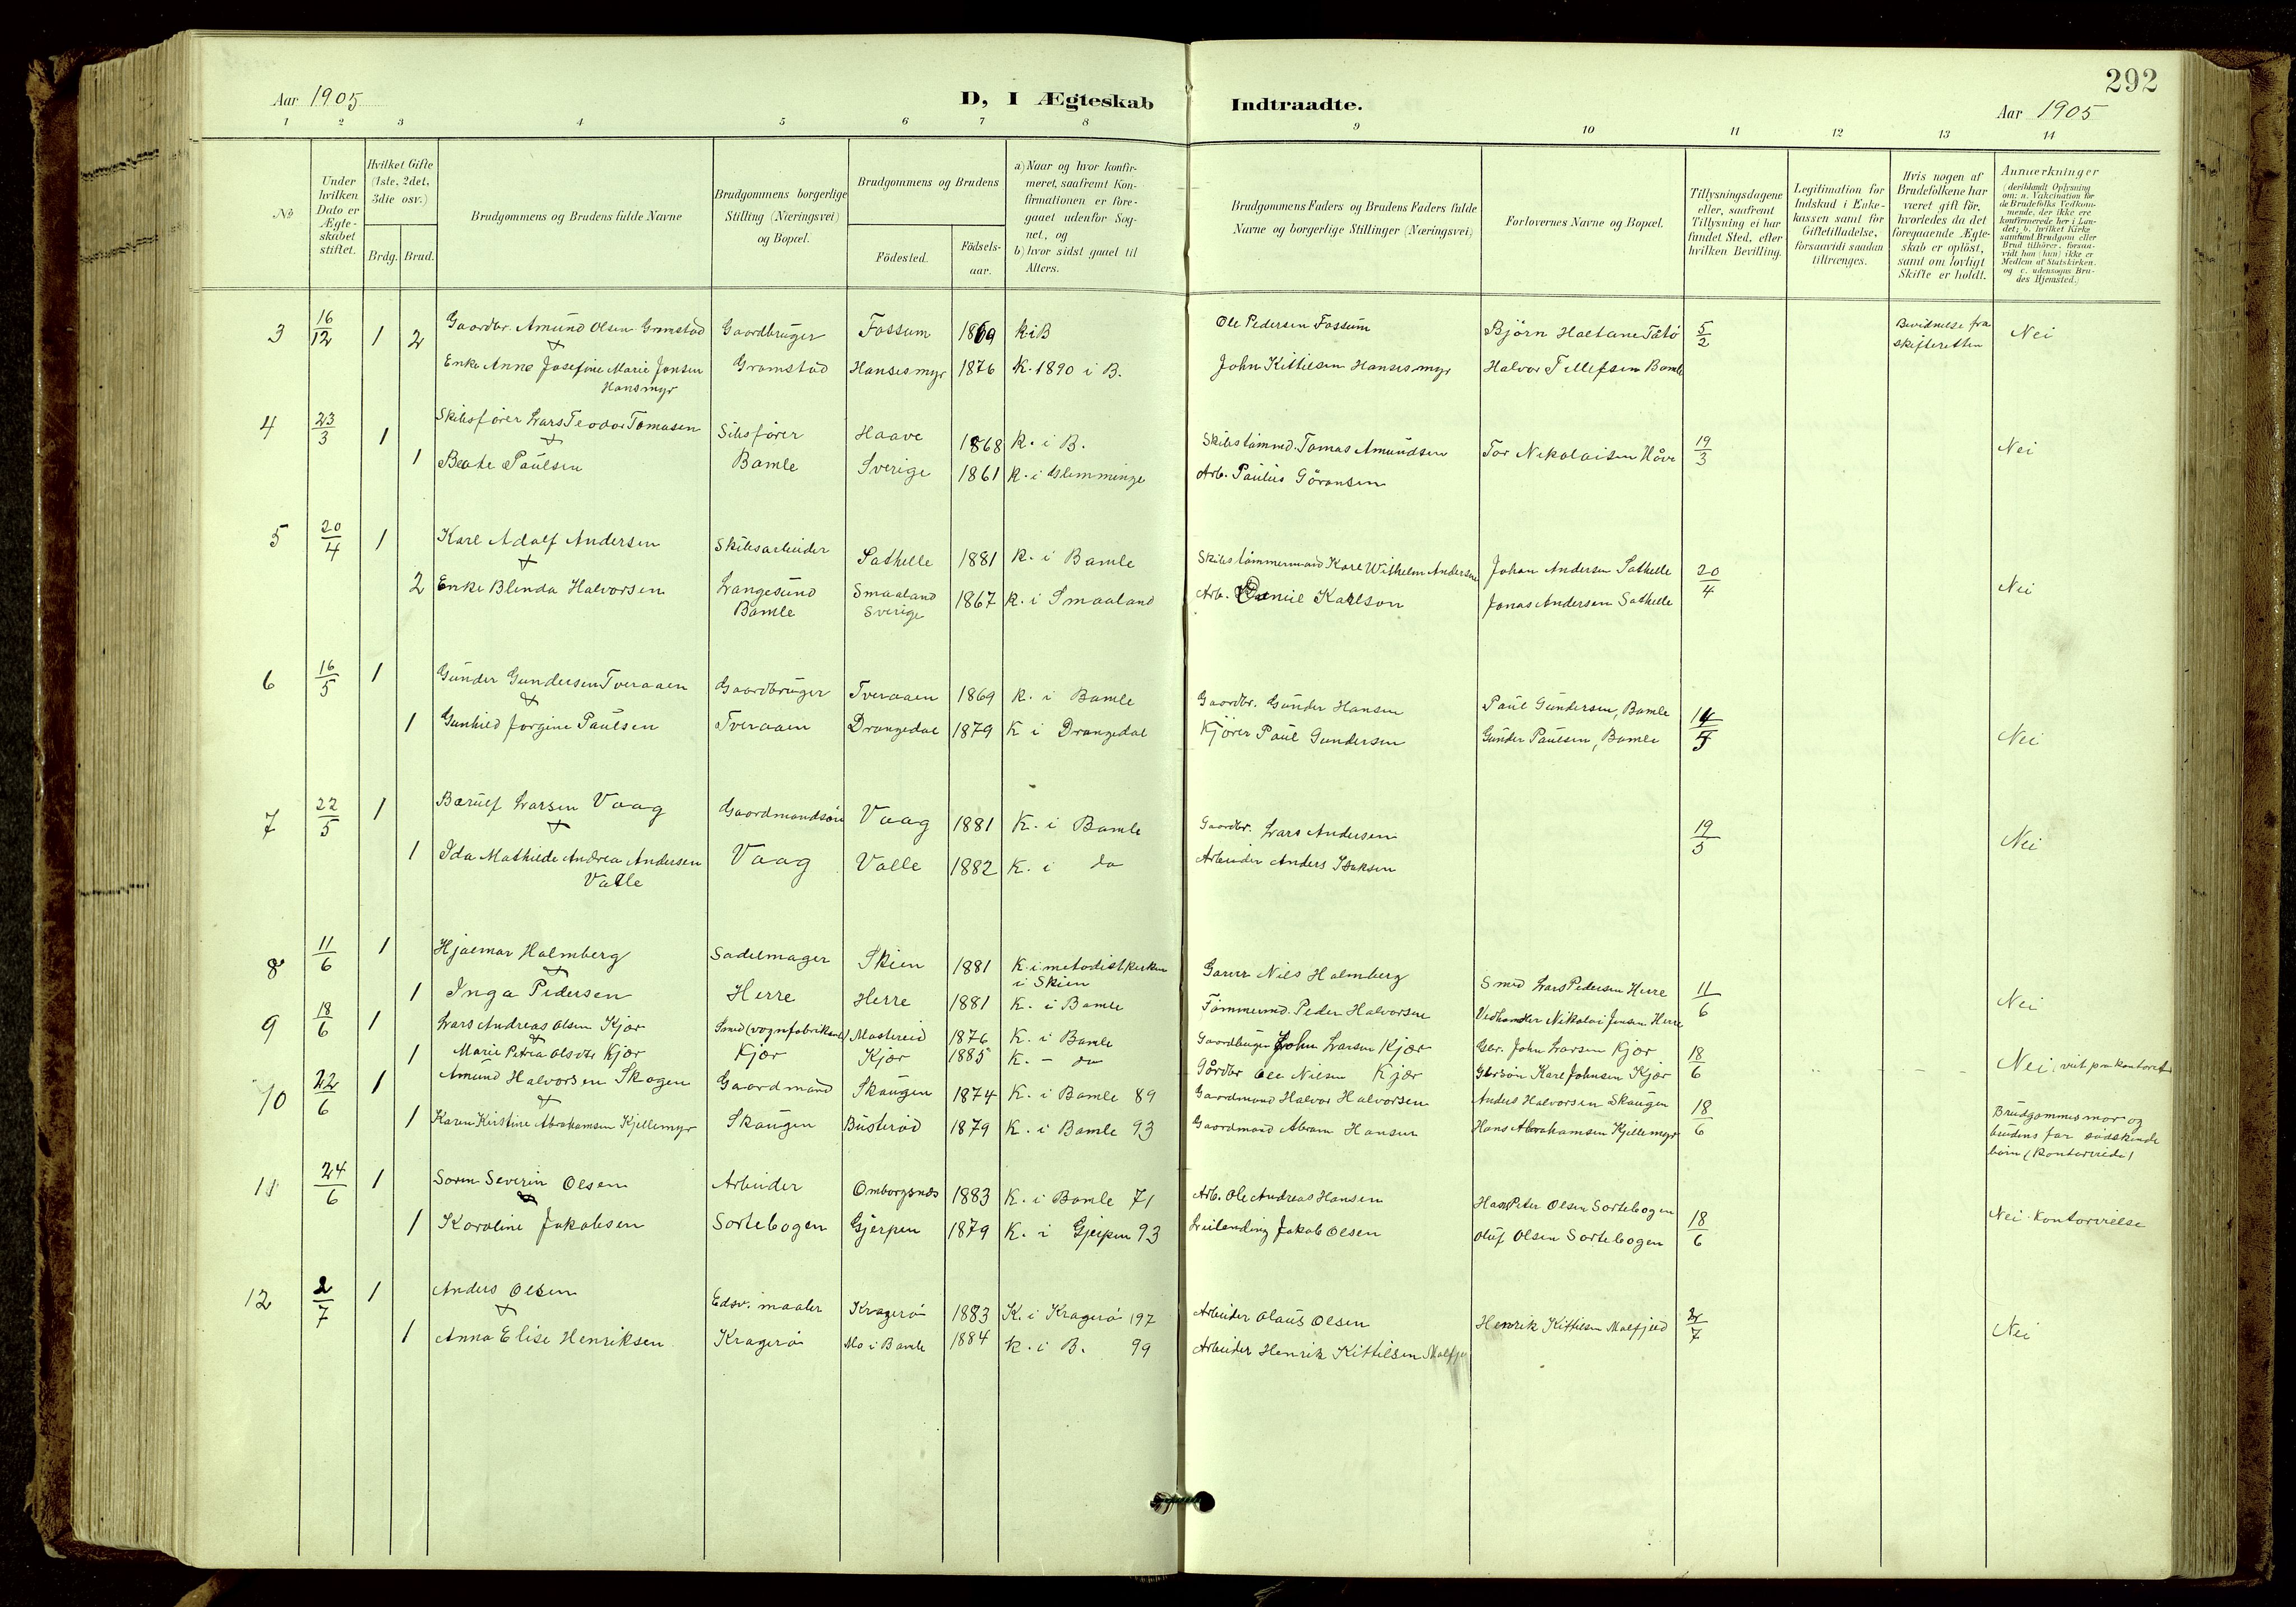 292
Aar 1905
D, I Ægteskab Indtraadte.
Aar 1905
1 2 3 4 5 6 7 8 9 10 11 12 13 14
No
Under hvilken Dato er Ægte-skabet stiftet.
Hvilket Gifte (1ste, 2det, 3die osv.)
Brdg. Brud.
Brudgommens og Brudens fulde Navne
Brudgommens borgerlige Stilling (Næringsvei) og Bopæl.
Brudgommens og Brudens
Födested.
Födsels-aar.
a) Naar og hvor konfir-
meret, saafremt Kon-
firmationen er fore-
gaaet udenfor Sog-
net., og
b) hvor sidst gaaet til
Alters.
Brudgommens Faders og Brudens Faders fulde
Navne og borgerlige Stillinger (Næringsvei)
Forlovernes Navne og Bopæl.
Tillysningsdagene
eller, saafremt
Tillysning ei har
fundet Sted, efter
hvilken Bevilling.
Legitimation for
Indskud i Enke-
kassen samt for
Giftetilladelse,
forsaavidt saadan
tiltrænges.
Hvis nogen af
Brudefolkene har
været gift för,
hvorledes da det
foregaaende Ægte-
skab er oplöst,
samt om lovligt
Skifte er holdt.
Anmærkninger
(deriblandt Oplysning
om: a. Vakcination for
de Brudefolks Vedkom-
mende, der ikke ere
konfirmerede her i Lan-
det; b. hvilket Kirke
samfund Brudgom eller
Brud tilhører, forsaa-
vidt han (hun) ikke er
Medlem af Statskirken.
og c. udensogns Bru-
des Hjemsted.)
3 16/12 1 2 Gaardbr. Amund Olsen Grmstad Gaardbruger Fossum 1869 k i B Ole Pedersen Fossum Björn Haltane Tåtö 5/2 Bevidnelse fra skifteretten Nei
Enke Anne Josefine Marie Jonsen Hansmyr Gromstad Hansesmyr 1876 K. 1890 i B. John Kittilsen Hansesmyr Halvor Tellefsen Bamle
4 23/3 1 Skibsfører Lars Teodor Tomasen Sibsfører Haave 1868 k. i B. Skibstömmd. Tomas Amundsen Tor Nikolaisen Håve 19/3 Nei
1 Beate Paulsen Bamle Sverige 1861 k. i Glemminge Arb. Paulus Göransen
5 20/4 1 Karl Adolf Andersen Skibsarbeider Sathelle 1881 k. i Bamle Skibstömmermand Karl Wilhelm Andersen Johan Andersen Sathelle 20/4 Nei
2 Enke Blenda Halvorsen Langesund Bamle Smaaland Sverige 1867 k. i Smaaland Arb. Daniel Karlson Jonas Andersen Sathelle
6 16/5 1 Gunder Gundersen Tveraaen Gaardbruger Tveraaen 1869 k. i Bamle Gaardbr. Gunder Hansen Paul Gundersen, Bamle 14/5 Nei
1 Gunhild Jorgine Paulsen Tveraaen Drangedal 1879 K i Drangedal Kjörer Paul Gundersen Gunder Paulsen, Bamle
7 22/5 1 Børulf Larsen Vaag Gaardmandsön Vaag 1881 K. i Bamle Gaardbr. Lars Andersen 19/5 Nei
1 Ida Mathilde Andrea Andersen Valle Vaag Valle 1882 K. i do Arbeider Anders Isaksen
8 11/6 1 Hjalmar Holmberg Sadelmager Skien 1881 K. i metodistkirken i Skien Garver Nils Holmberg Smed Lars Pedersen Herre 11/6 Nei
1 Inga Pedersen Herre Herre 1881 K. i Bamle Tömmermd. Peder Halvorsen Vedhandler Nikolai Jensen Herre
9 18/6 1 Lars Andreas Olsen Kjær Smed (vognfabrikant) Mastereid 1876 K. i Bamle Gaardbruger John Larsen Kjær Gbr. John Larsen Kjær 18/6 Nei (viet paa kontoret)
1 Marie Petria Kjær Kjær Kjær 1885 K. - do Gårdbr Ole Nilsen Kjær Gbrsön Karl Johnsen Kjær
10 22/6 1 Amund Halvorsen Skogen Gaardmand Skaugen 1874 K. i Bamle 89 Gaardmand Halvor Halvorsen Anders Halvorsen Skaugen 18/6 Brudgommes mor og brudens far södskende börn (kontorviede)
1 Karen Kirstine Abrahamsen Kjellemyr Skaugen Busterød 1879 K. i Bamle 93 Gaardmand Abram Hansen Hans Abrahamsen Kjellemyr
11 24/6 1 Søren Severin Olsen Arbeider Omborgsnes 1883 K. i Bamle 71 Arb. Ole Andreas Hansen Hans Peter Olsen Sortebogen 18/6 Nei. Kontorvielse
1 Karoline Jakobsen Sortebogen Gjerpen 1879 K. i Gjerpen 93 Leilending Jakob Olsen Oluf Olsen Sortebogen
12 2/7 1 Anders Olsen Edsv. maaler Kragerö 1883 K. i Kragerö 197 Arbeider Olaus Olsen Henrik Kittilsen Malfjeld 2/7 Nei
1 Anna Elise Henriksen Kragerö Mo i Bamle 1884 k. i B. 99 Arbeider Henrik Kittilsen